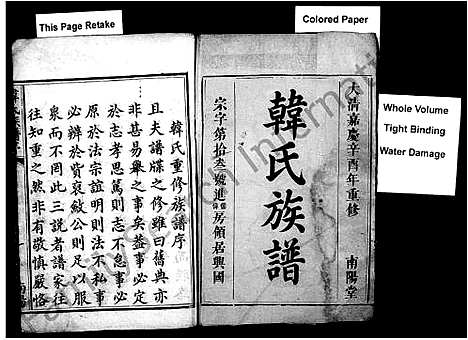 This Page Retake
Colored Paper
Whole Volume
Tight Binding
Water Damage
大清嘉慶辛酉年重修
韓氏族譜
南陽堂
宗字第拾叁號進
房領居興國
韓氏重修族譜序
且夫譜牒之修雖曰舊典亦
非甚易舉之事矣蓋事必定
於志孝思篤則志不怠事必
原於法宗誼明則法不私事
必辨於貲裒斂公則足以服
衆而不罔此三説者譜家往
往知重之然非有敬慎嚴恪